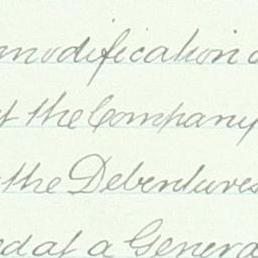 modification o
t the Company
the Debentures
ed at a Genera